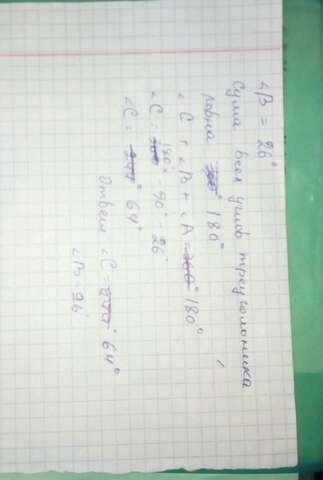 ∠B = 26°
Сума всех углов треугольника
равна 180°
∠C + ∠B + ∠A = 180°
∠C = 180° - 90° 26°
∠C = 64°
Ответ: ∠C = 64°
∠B = 26°